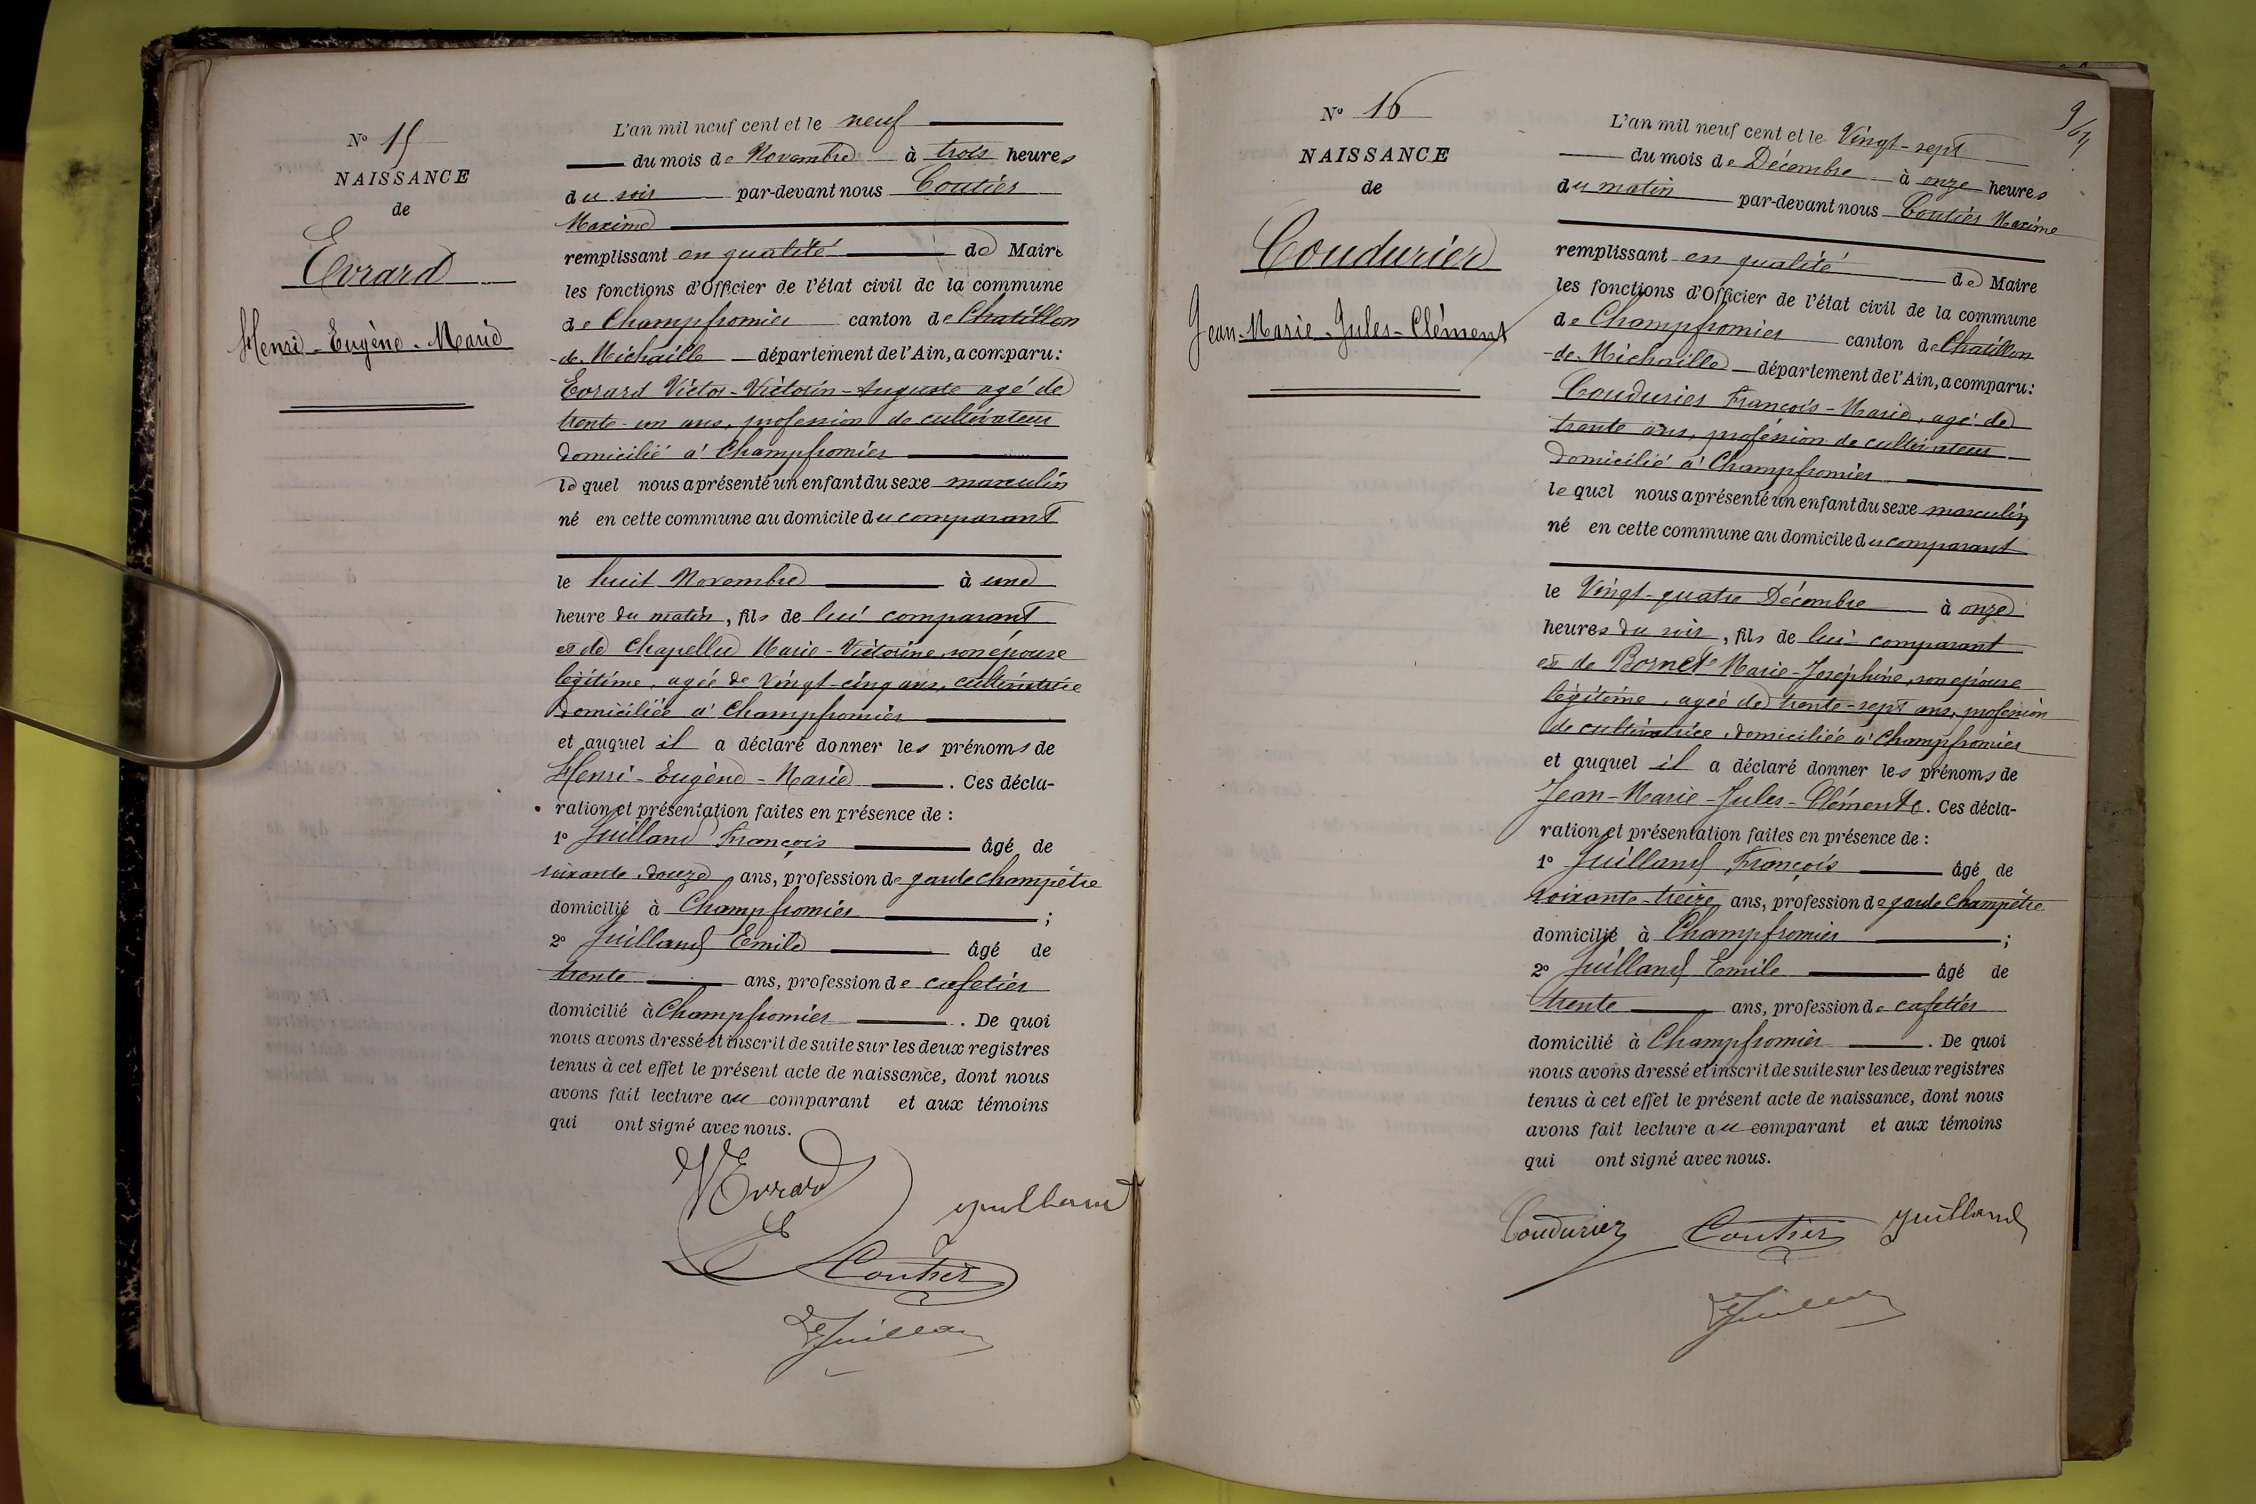 N° 15
NAISSANCE
de
Evrard
Henri-Eugène-Marie
L'an mil neuf cent et le neuf
du mois de Novembre à trois heures
du soir par-devant nous Coutier
Maxime
remplissant en qualité de Maire
les fonctions d'Officier de l'état civil de la commune
de Champfromier canton de Chatillon
-de-Michaille département de l'Ain, a comparu:
Evrard Victor-Victorin-Auguste agé de
trente-un ans, profession de cultivateur
domicilié à Champfromier
lequel nous a présenté un enfant du sexe masculin
né en cette commune au domicile du comparant
le huit Novembre à une
heure du matin, fils de lui comparant
et de Chapellu Marie-Victorine, son épouse
légitime, agée de vingt-cinq ans, cultivatrice
domiciliée à Champfromier
et auquel il a déclaré donner les prénoms de
Henri-Eugène-Marie. Ces décla-
ration et présentation faites en présence de :
1° Juilland François âgé de
soixante-douze ans, profession de garde champêtre
domicilié à Champfromier ;
2° Juilland Emile âgé de
trente ans, profession de cafetier
domicilié à Champfromier. De quoi
nous avons dressé et inscrit de suite sur les deux registres
tenus à cet effet le présent acte de naissance, dont nous
avons fait lecture au comparant et aux témoins
qui ont signé avec nous.
VEvrard
Juilland
Coutier
E Juilland
N° 16
NAISSANCE
de
Coudurier
Jean-Marie-Jules-Clément
9/
L'an mil neuf cent et le Vingt-sept
du mois de Décembre à onze heures
du matin par-devant nous Coutier Maxime
remplissant en qualité de Maire
les fonctions d'Officier de l'état civil de la commune
de Champfromier canton de Chatillon
-de-Michaille département de l'Ain, a comparu:
Coudurier François-Marie, agé de
trente ans, profession de cultivateur
domicilié à Champfromier
lequel nous a présenté un enfant du sexe masculin
né en cette commune au domicile du comparant
le Vingt-quatre Décembre à onze
heures du soir, fils de lui comparant
et de Bornet Marie-Joséphine, son épouse
légitime, agée de trente-sept ans, profession
de cultivatrice, domiciliée à Champfromier
et auquel il a déclaré donner les prénoms de
Jean-Marie-Jules-Clément. Ces décla-
ration et présentation faites en présence de :
1° Juilland François âgé de
soixante-treize ans, profession de garde champêtre
domicilié à Champfromier ;
2° Juilland Emile âgé de
trente ans, profession de cafetier
domicilié à Champfromier. De quoi
nous avons dressé et inscrit de suite sur les deux registres
tenus à cet effet le présent acte de naissance, dont nous
avons fait lecture au comparant et aux témoins
qui ont signé avec nous.
Coudurier Coutier Juilland
E Juilland